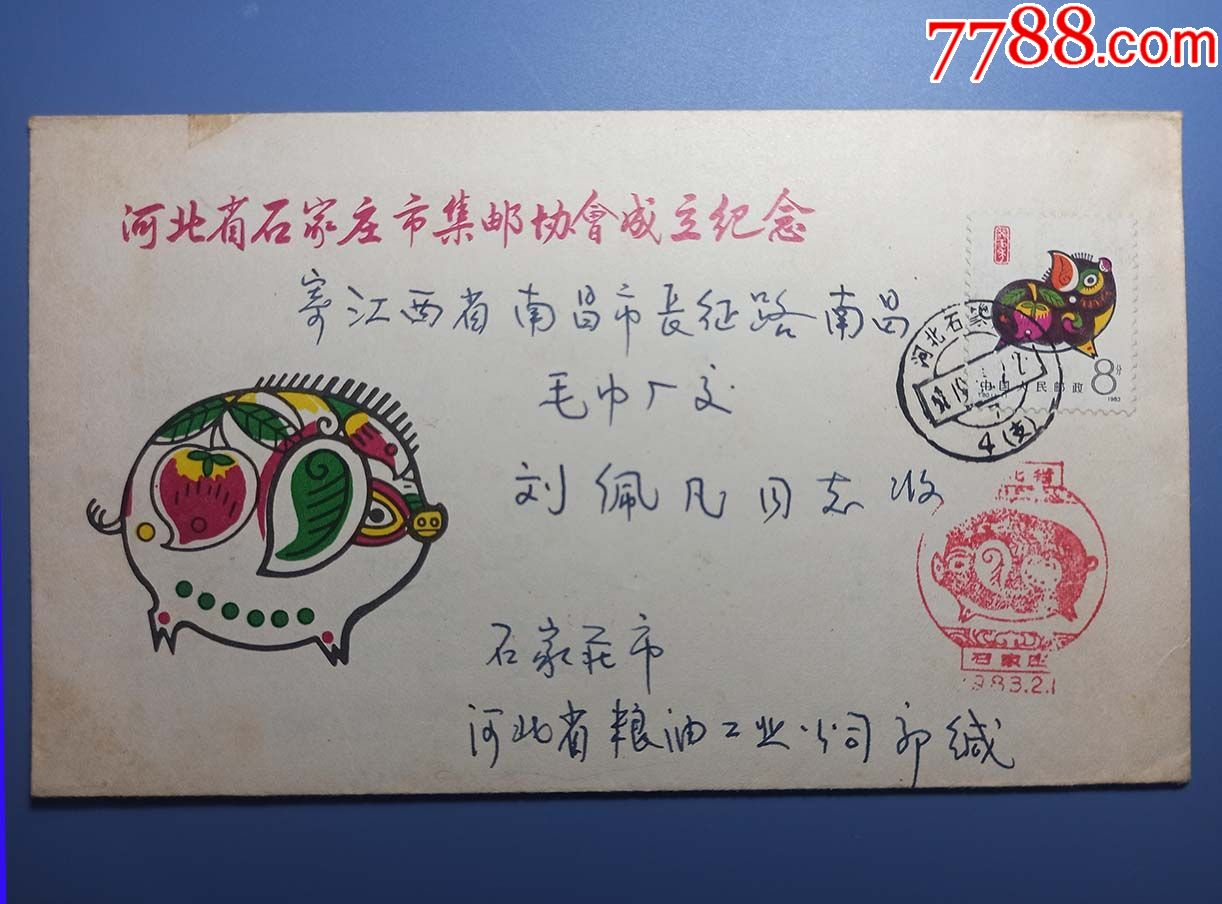 7788.com
河北省石家庄市集邮协會成立纪念
寄江西省南昌市長征路南昌
毛巾厂交
刘佩凡同志收
石家庄市
河北省粮油工业公司郭缄
中国人民邮政
8分
1983
河北石家
4(支)
石家庄
1983.2.1